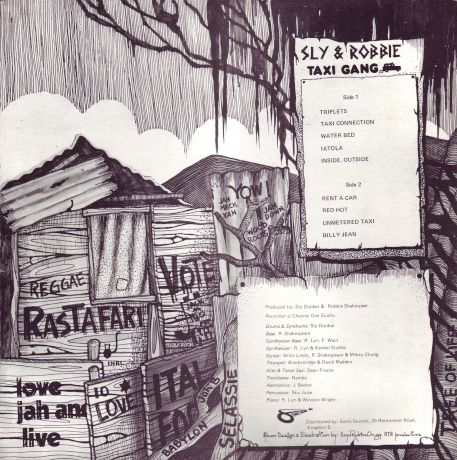 SLY & ROBBIE
TAXI GANG
Side 1
TRIPLETS
TAXI CONNECTION
WATER BED
IATOLA
INSIDE, OUTSIDE
Side 2
RENT A CAR
RED HOT
UNMETERED TAXI
BILLY JEAN
YOW
REGGAE
RASTAFARI
VOTE
I.N.R.I.
love
jah and
live
10
LOVE
ITAL
BABYLON
SELASSIE
Produced by: Slo Dunbar & Robbie Shakespear
Recorded at Channel One Studio
Drums & Syndrums: Slo Dunbar
Bass: R. Shakespeare
Synthesizer Bass: R. Lyn, F. Waul
Synthesizer: R. Lyn & Kendal Stubbs
Guitar: Willie Lindo, R. Shakespeare & Mikey Chung
Trumpet: Breckenridge & David Madden
Alto & Tenor Sax: Dean Frazier
Trombone: Nambo
Harmonica: J. Becker
Percussion: Sky Juice
Piano: R. Lyn & Winston Wright
Distributed by: Sonic Sounds, 25 Retirement Road,
Kingston 5.
Album Design & Illustration by: productions